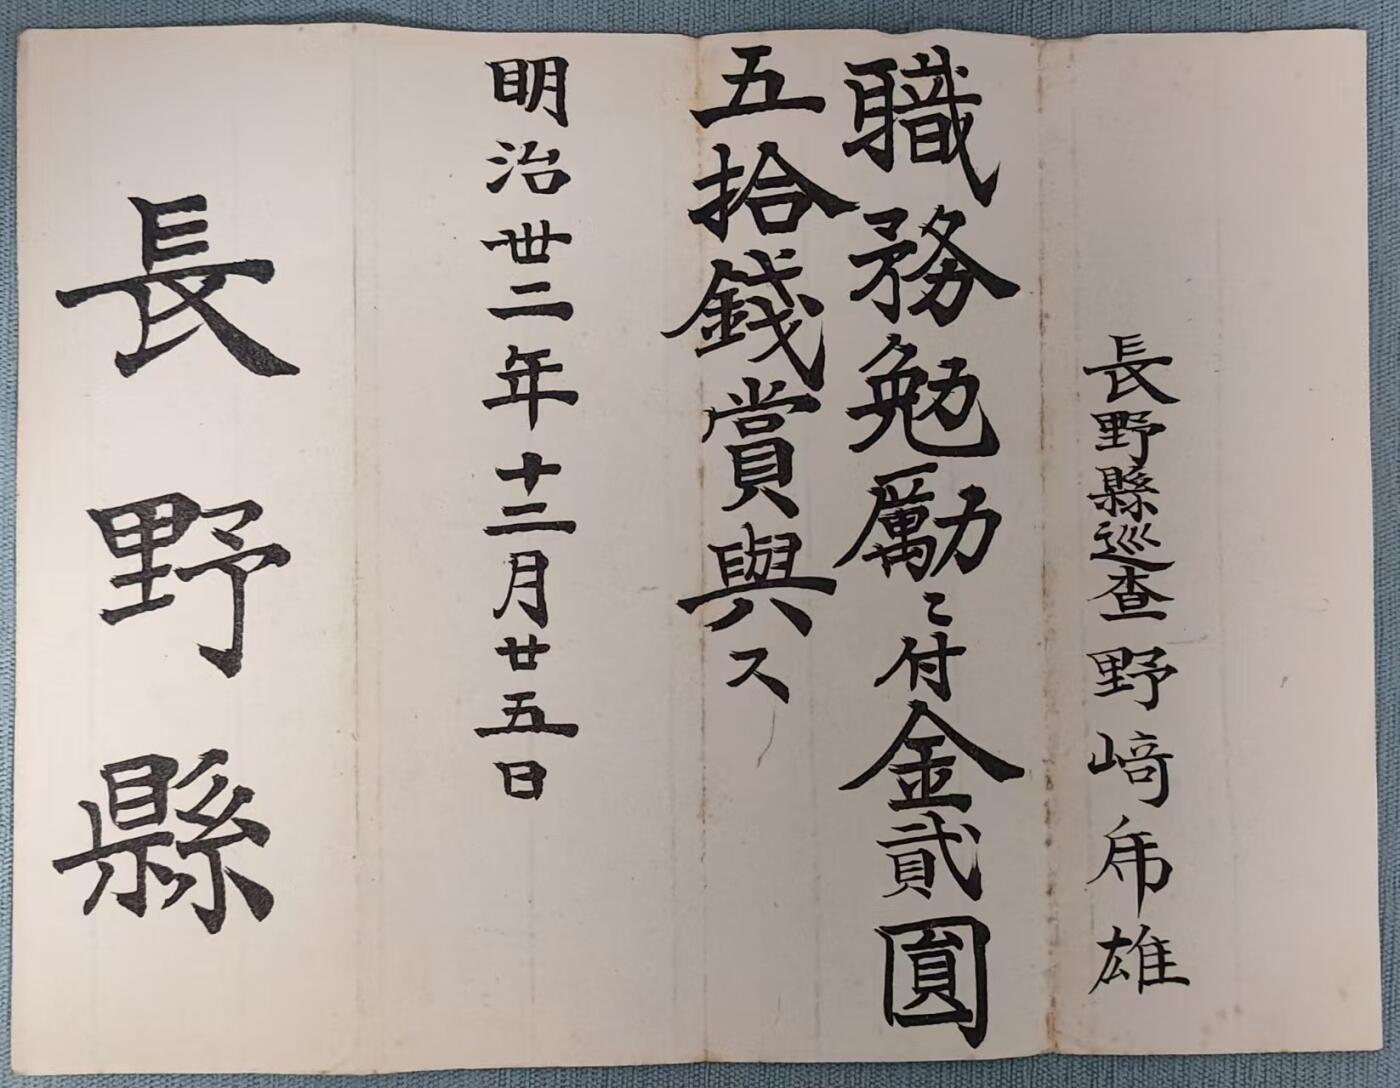 長野縣巡査野﨑乕雄
職務勉勵ニ付金貳圓
五拾錢賞與ス
明治丗二年十二月廿五日
長野縣